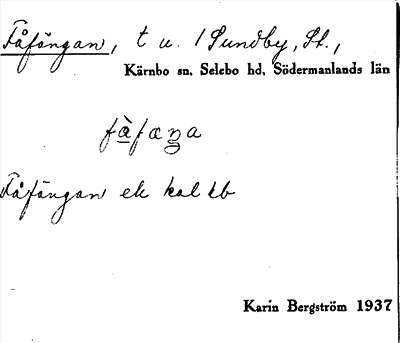 Fåfängan, t u. 1 Sundby, St.,
Kärnbo sn, Selebo hd, Södermanlands län
fàfæŋa
Fåfängan ek kal kb
Karin Bergström 1937